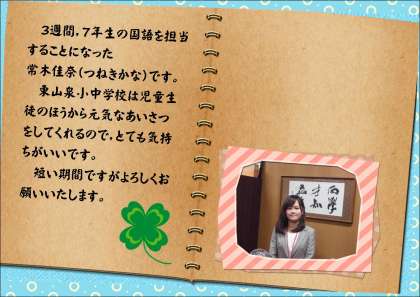 ３週間，７年生の国語を担当
することになった
常木佳奈（つねきかな）です。
東山泉小中学校は児童生
徒のほうから元気なあいさつ
をしてくれるので，とても気持
ちがいいです。
短い期間ですがよろしくお
願いいたします。